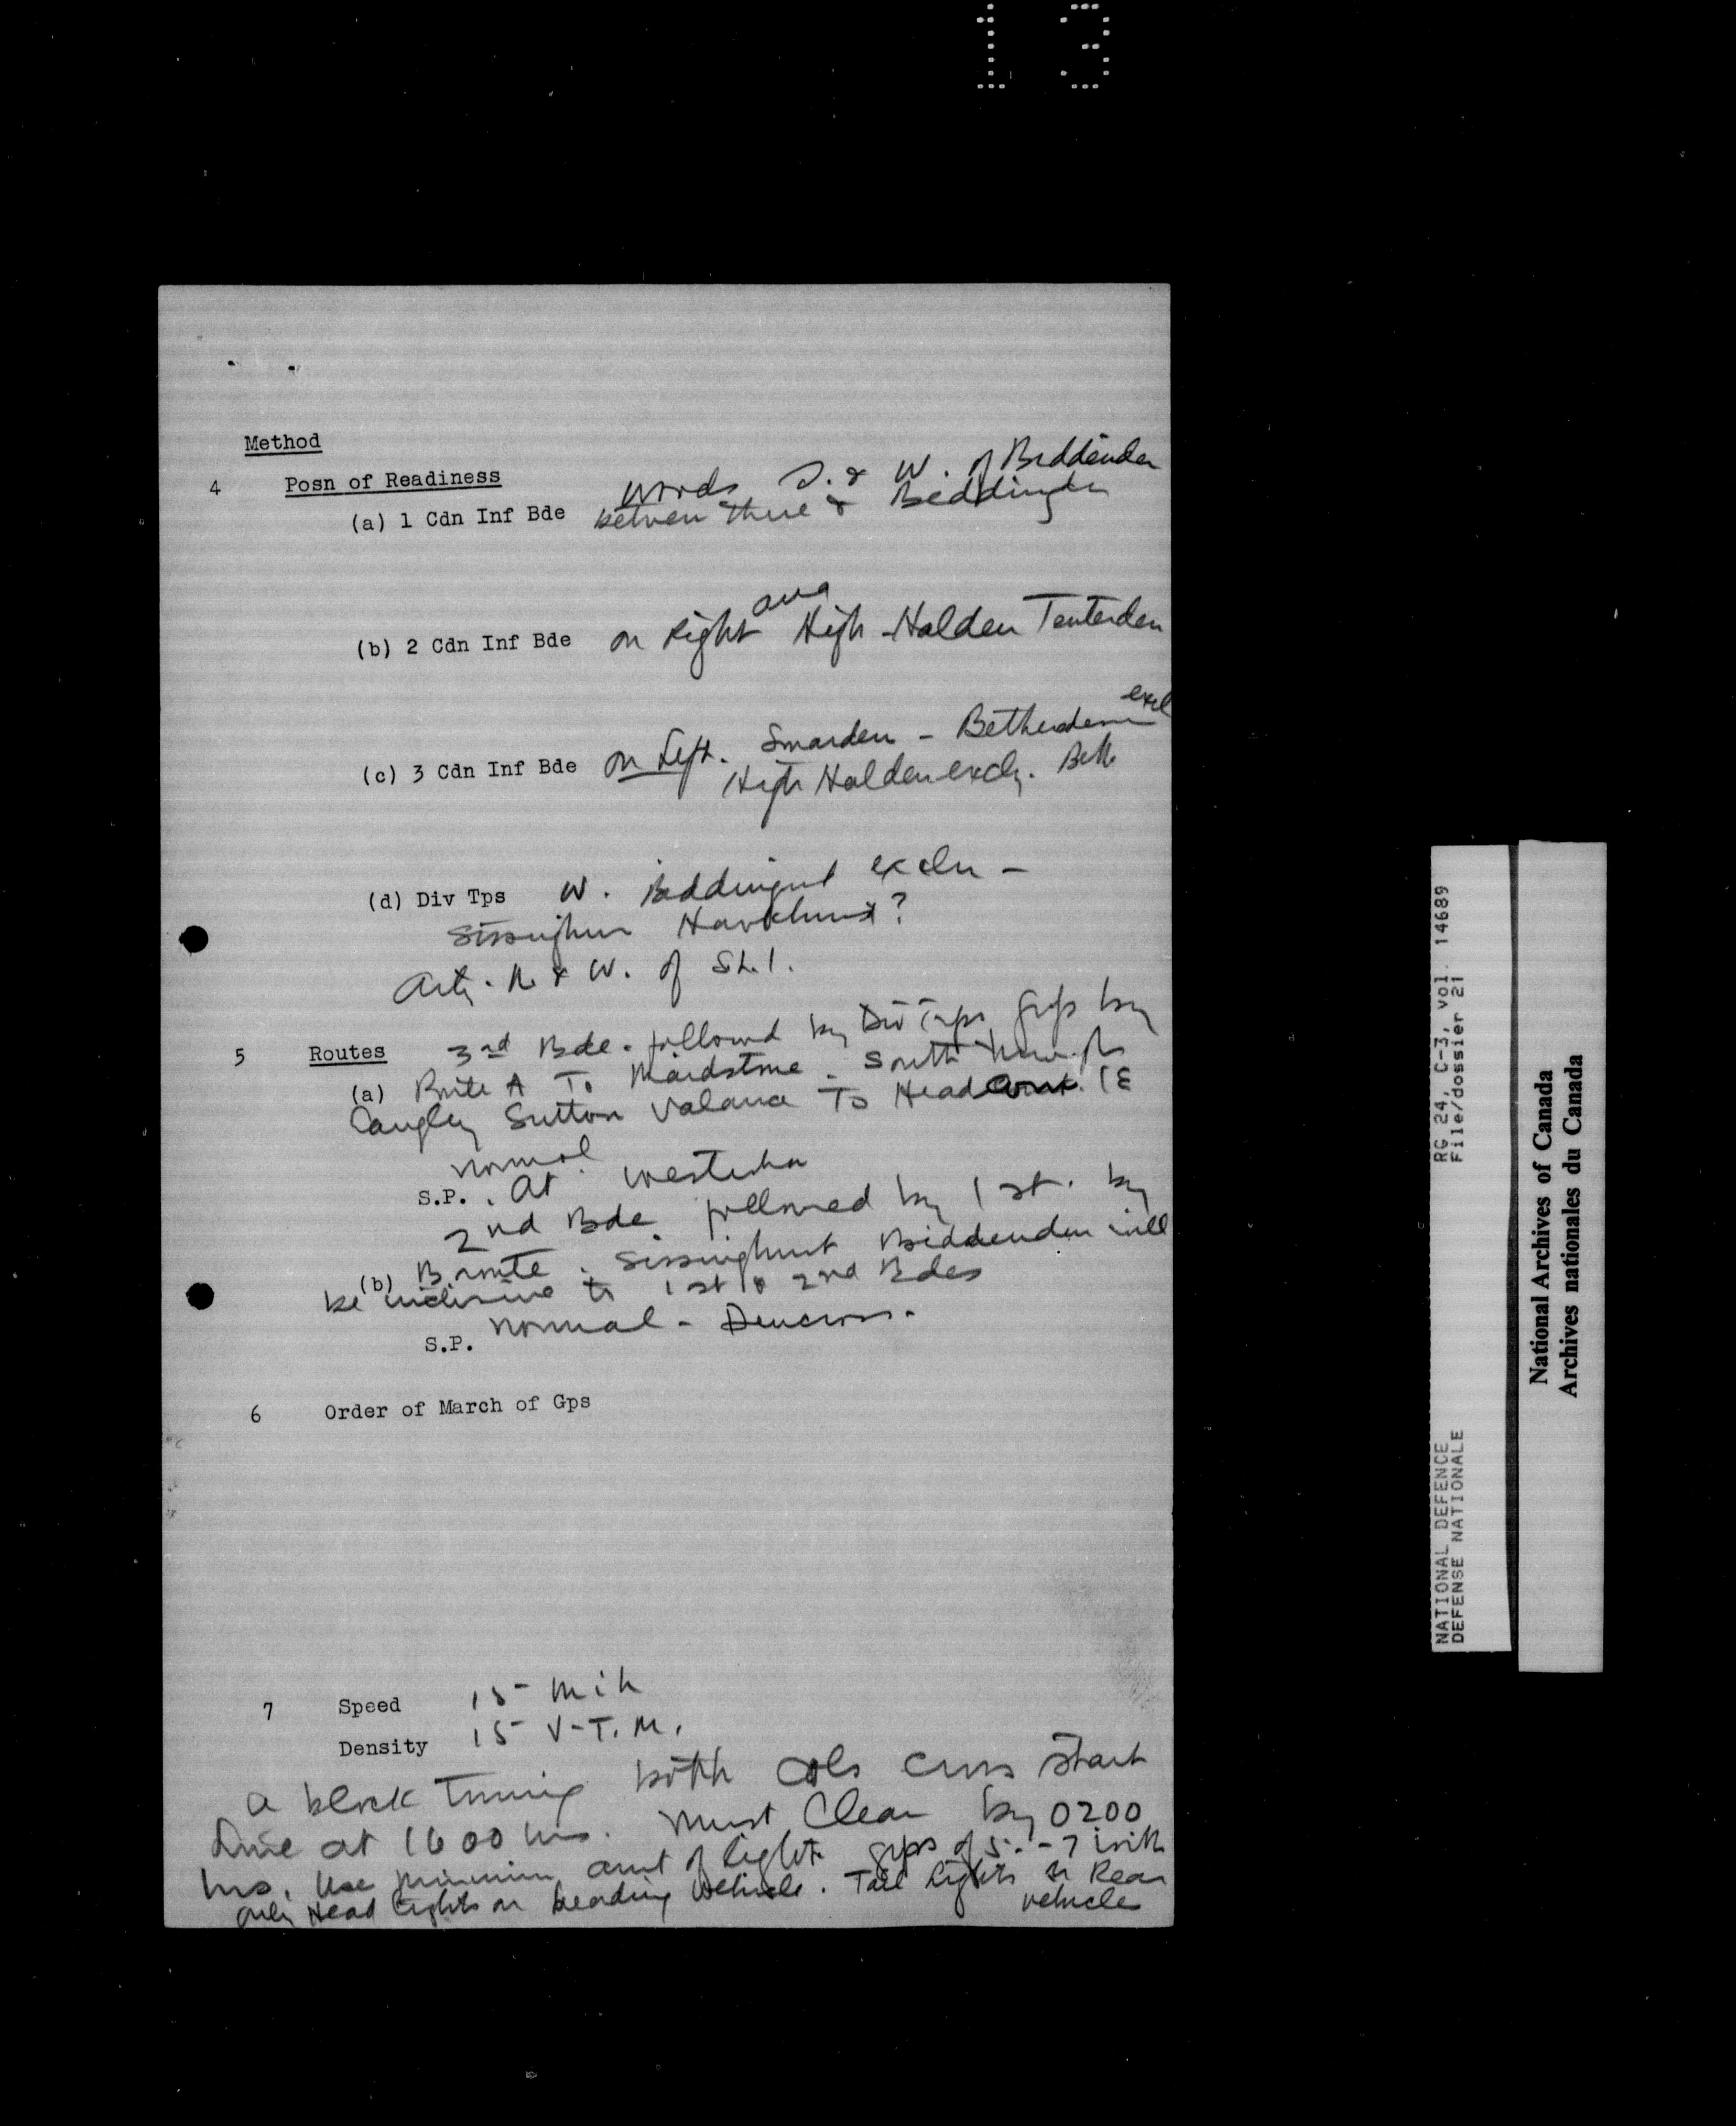 13
Method
4 Posn of Readiness
woods S. & W. of Biddenden
(a) 1 Cdn Inf Bde between there &
area
(b) 2 Cdn Inf Bde on Right High Halden Tenterden
excl
(c) 3 Cdn Inf Bde on Left. Smarden - Bethersden
High Halden excl. Beth
(d) Div Tps W. exclu -
Hawkhurst?
Arty. N & W. of
5 Routes 3rd Bde. followed by Div Tps Grps by
(a) Route A To Maidstone. South through
Langley Sutton Valance To Headcorn.
normal
S.P. . At Westerham
2nd Bde followed by 1st. by
(b) B route. Sissinghurst Biddenden will
be inclusive to 1st & 2nd Bdes
S.P. normal -
6 Order of March of Gps
7 Speed 15 m i h
Density 15 V.T.M.
a block timing both cols cross start
line at 1600 hrs. Must Clear by 0200
hrs. Use minimum amt of light. grps of 5 - 7 with
only Head lights on leading vehicle. Tail lights on Rear
vehicles
RG 24, C-3, vol. 14689
File/dossier 21
NATIONAL DEFENCE
DEFENSE NATIONALE
National Archives of Canada
Archives nationales du Canada